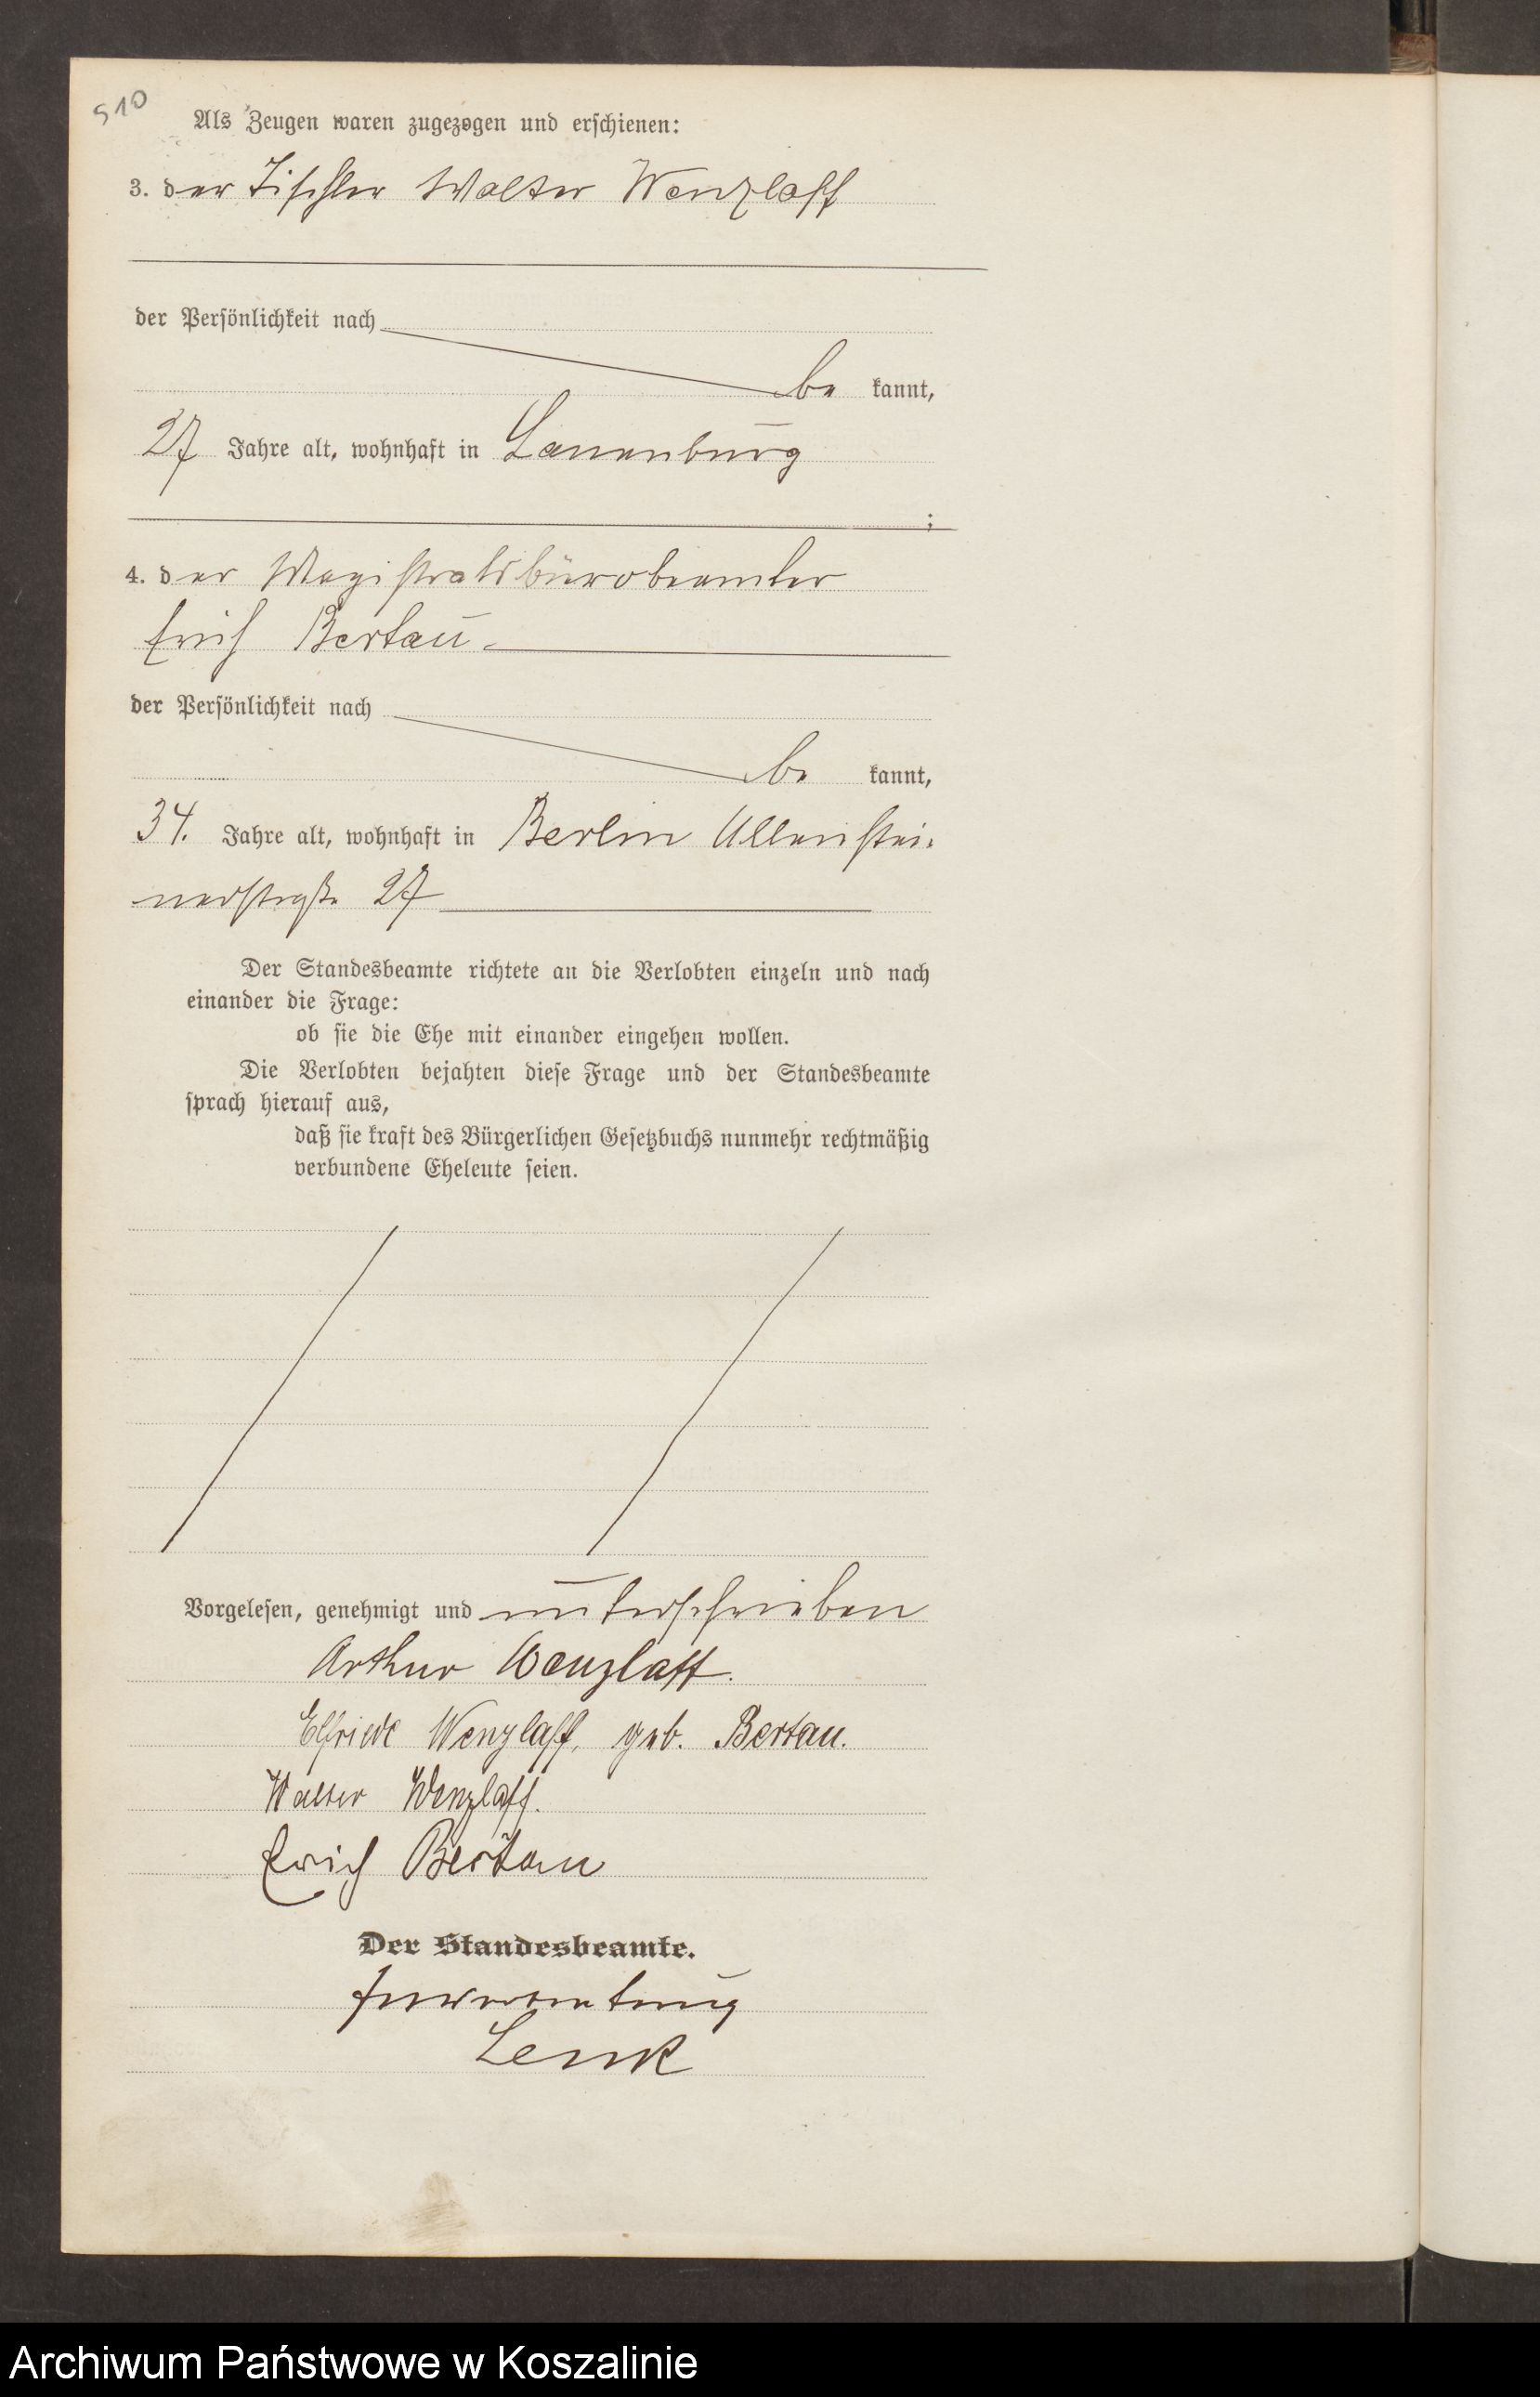 510
Als Zeugen waren zugezogen und erschienen:
3. der Tischler Walter Wenzlaff
der Persönlichkeit nach
be kannt,
27 Jahre alt, wohnhaft in Lauenburg
;
4. der Magistratsbürobeamter
Erich Bertau
der Persönlichkeit nach
be kannt,
34. Jahre alt, wohnhaft in Berlin Allenstei-
nerstraße 27
Der Standesbeamte richtete an die Verlobten einzeln und nach
einander die Frage:
ob sie die Ehe mit einander eingehen wollen.
Die Verlobten bejahten diese Frage und der Standesbeamte
sprach hierauf aus,
daß sie kraft des Bürgerlichen Gesetzbuchs nunmehr rechtmäßig
verbundene Eheleute seien.
Vorgelesen, genehmigt und unterschrieben
Arthur Wenzlaff.
Elfriede Wenzlaff, geb. Bertau.
Walter Wenzlaff.
Erich Bertau
Der Standesbeamte.
In Vertretung
Lenk
Archiwum Państwowe w Koszalinie